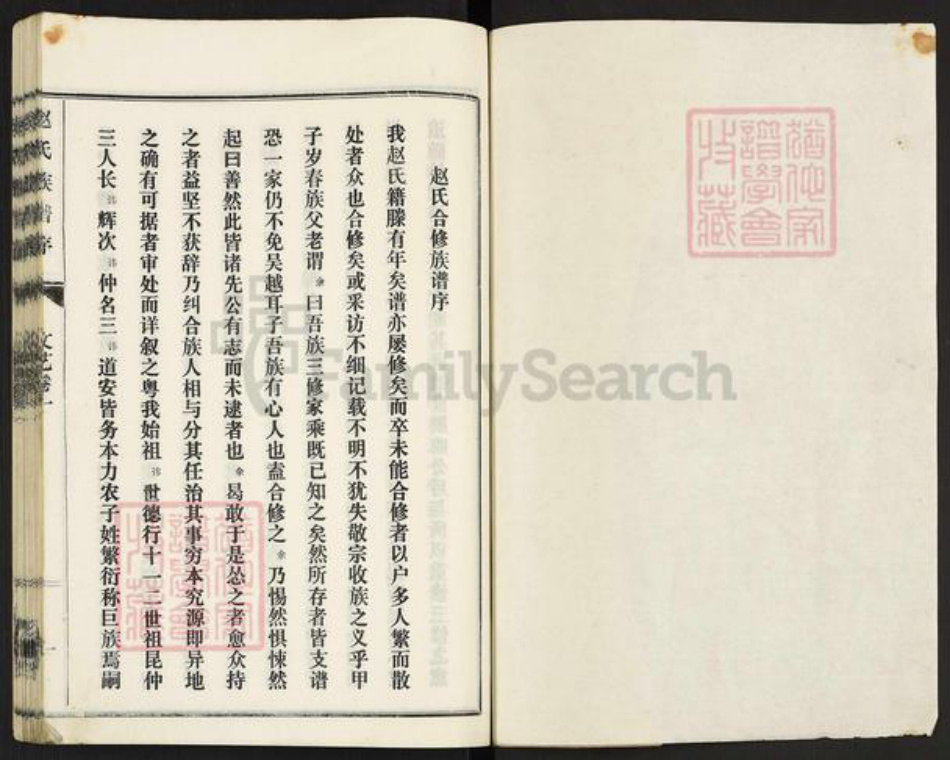 赵氏合修族谱序
我赵氏籍滕有年矣谱亦屡修矣而卒未能合修者以户多人繁而散
处者众也合修矣或采访不细记载不明不犹失敬宗收族之义乎甲
子岁春族父老谓余曰吾族三修家乘既已知之矣然所存者皆支谱
恐一家仍不免吴越耳子吾族有心人也盍合修之余乃惕然惧悚然
起曰善然此皆诸先公有志而未逮者也余曷敢于是怂之者愈众持
之者益坚不获辞乃纠合族人相与分其任治其事穷本究源即异地
之确有可据者审处而详叙之粤我始祖讳世德行十一二世祖昆仲
三人长讳辉次讳仲名三讳道安皆务本力农子姓繁衍称巨族焉嗣
赵氏族谱序
文艺卷一
一
犹他家
谱学会
收藏
犹他家
谱学会
收藏
FamilySearch